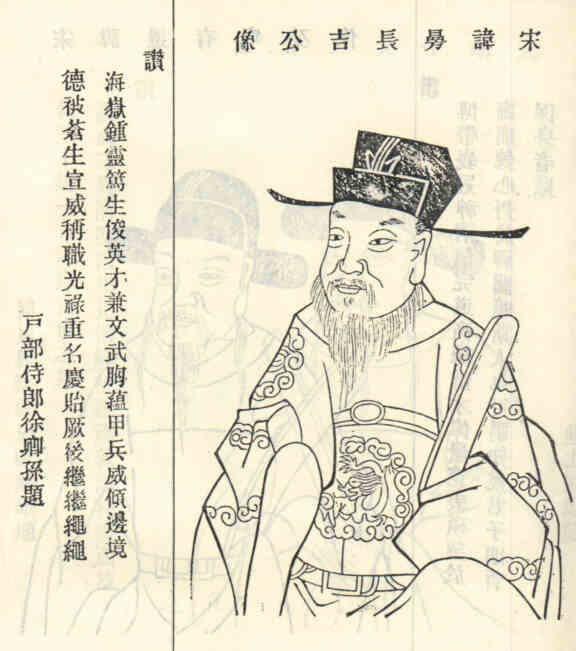 宋諱勗長吉公像
讚
海嶽鍾靈篤生俊英才兼文武胸蘊甲兵威傾邊境
德被蒼生宣威稱職光祿重名慶貽厥後繼繼繩繩
戸部侍郎徐卿孫題